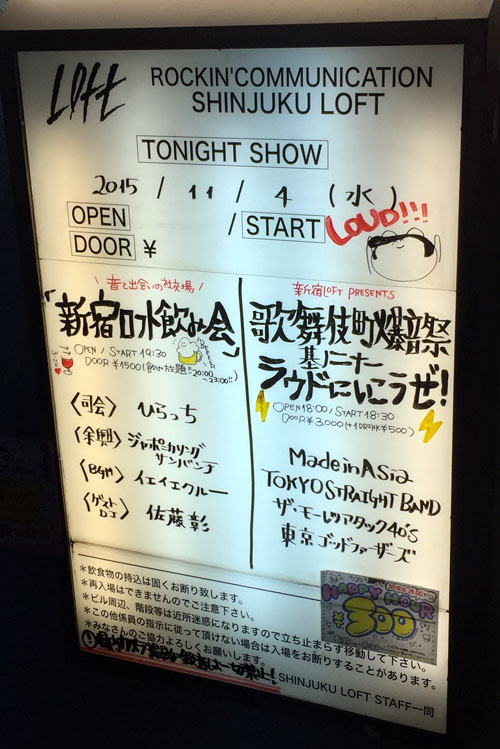 LOFT
ROCKIN'COMMUNICATION
SHINJUKU LOFT
TONIGHT SHOW
2015 / 11 / 4 (水)
OPEN / START
LOUD!!!
DOOR ¥
\ 音と出会いの社交場 /
「新宿ロフト飲み会」
OPEN / START 19:30
DOOR ¥1500 (飲み放題!! 20:00
~23:00!!)
〈司会〉 ひらっち
〈余興〉 ジャポニカソング
サンバンチ
〈BGM〉 イエイエクルー
〈ゲスト
DJ〉 佐藤彰
新宿LOFT PRESENTS
歌舞伎町爆音祭
ラウドにいこうぜ!
OPEN 18:00 / START 18:30
DOOR ¥3,000 (+1DRINK ¥500)
Made in Asia
TOKYO STRAIGHT BAND
ザ・モーレツアタック40's
東京ゴッドファーザーズ
HAPPY HOUR
¥300
*飲食物の持込は固くお断り致します。
*再入場はできませんのでご注意下さい。
*ビル周辺、階段等は近所迷惑になりますので立ち止まらず移動して下さい。
*この他係員の指示に従って頂けない場合は入場をお断りすることがあります。
*みなさんのご協力よろしくお願いします。
SHINJUKU LOFT STAFF一同